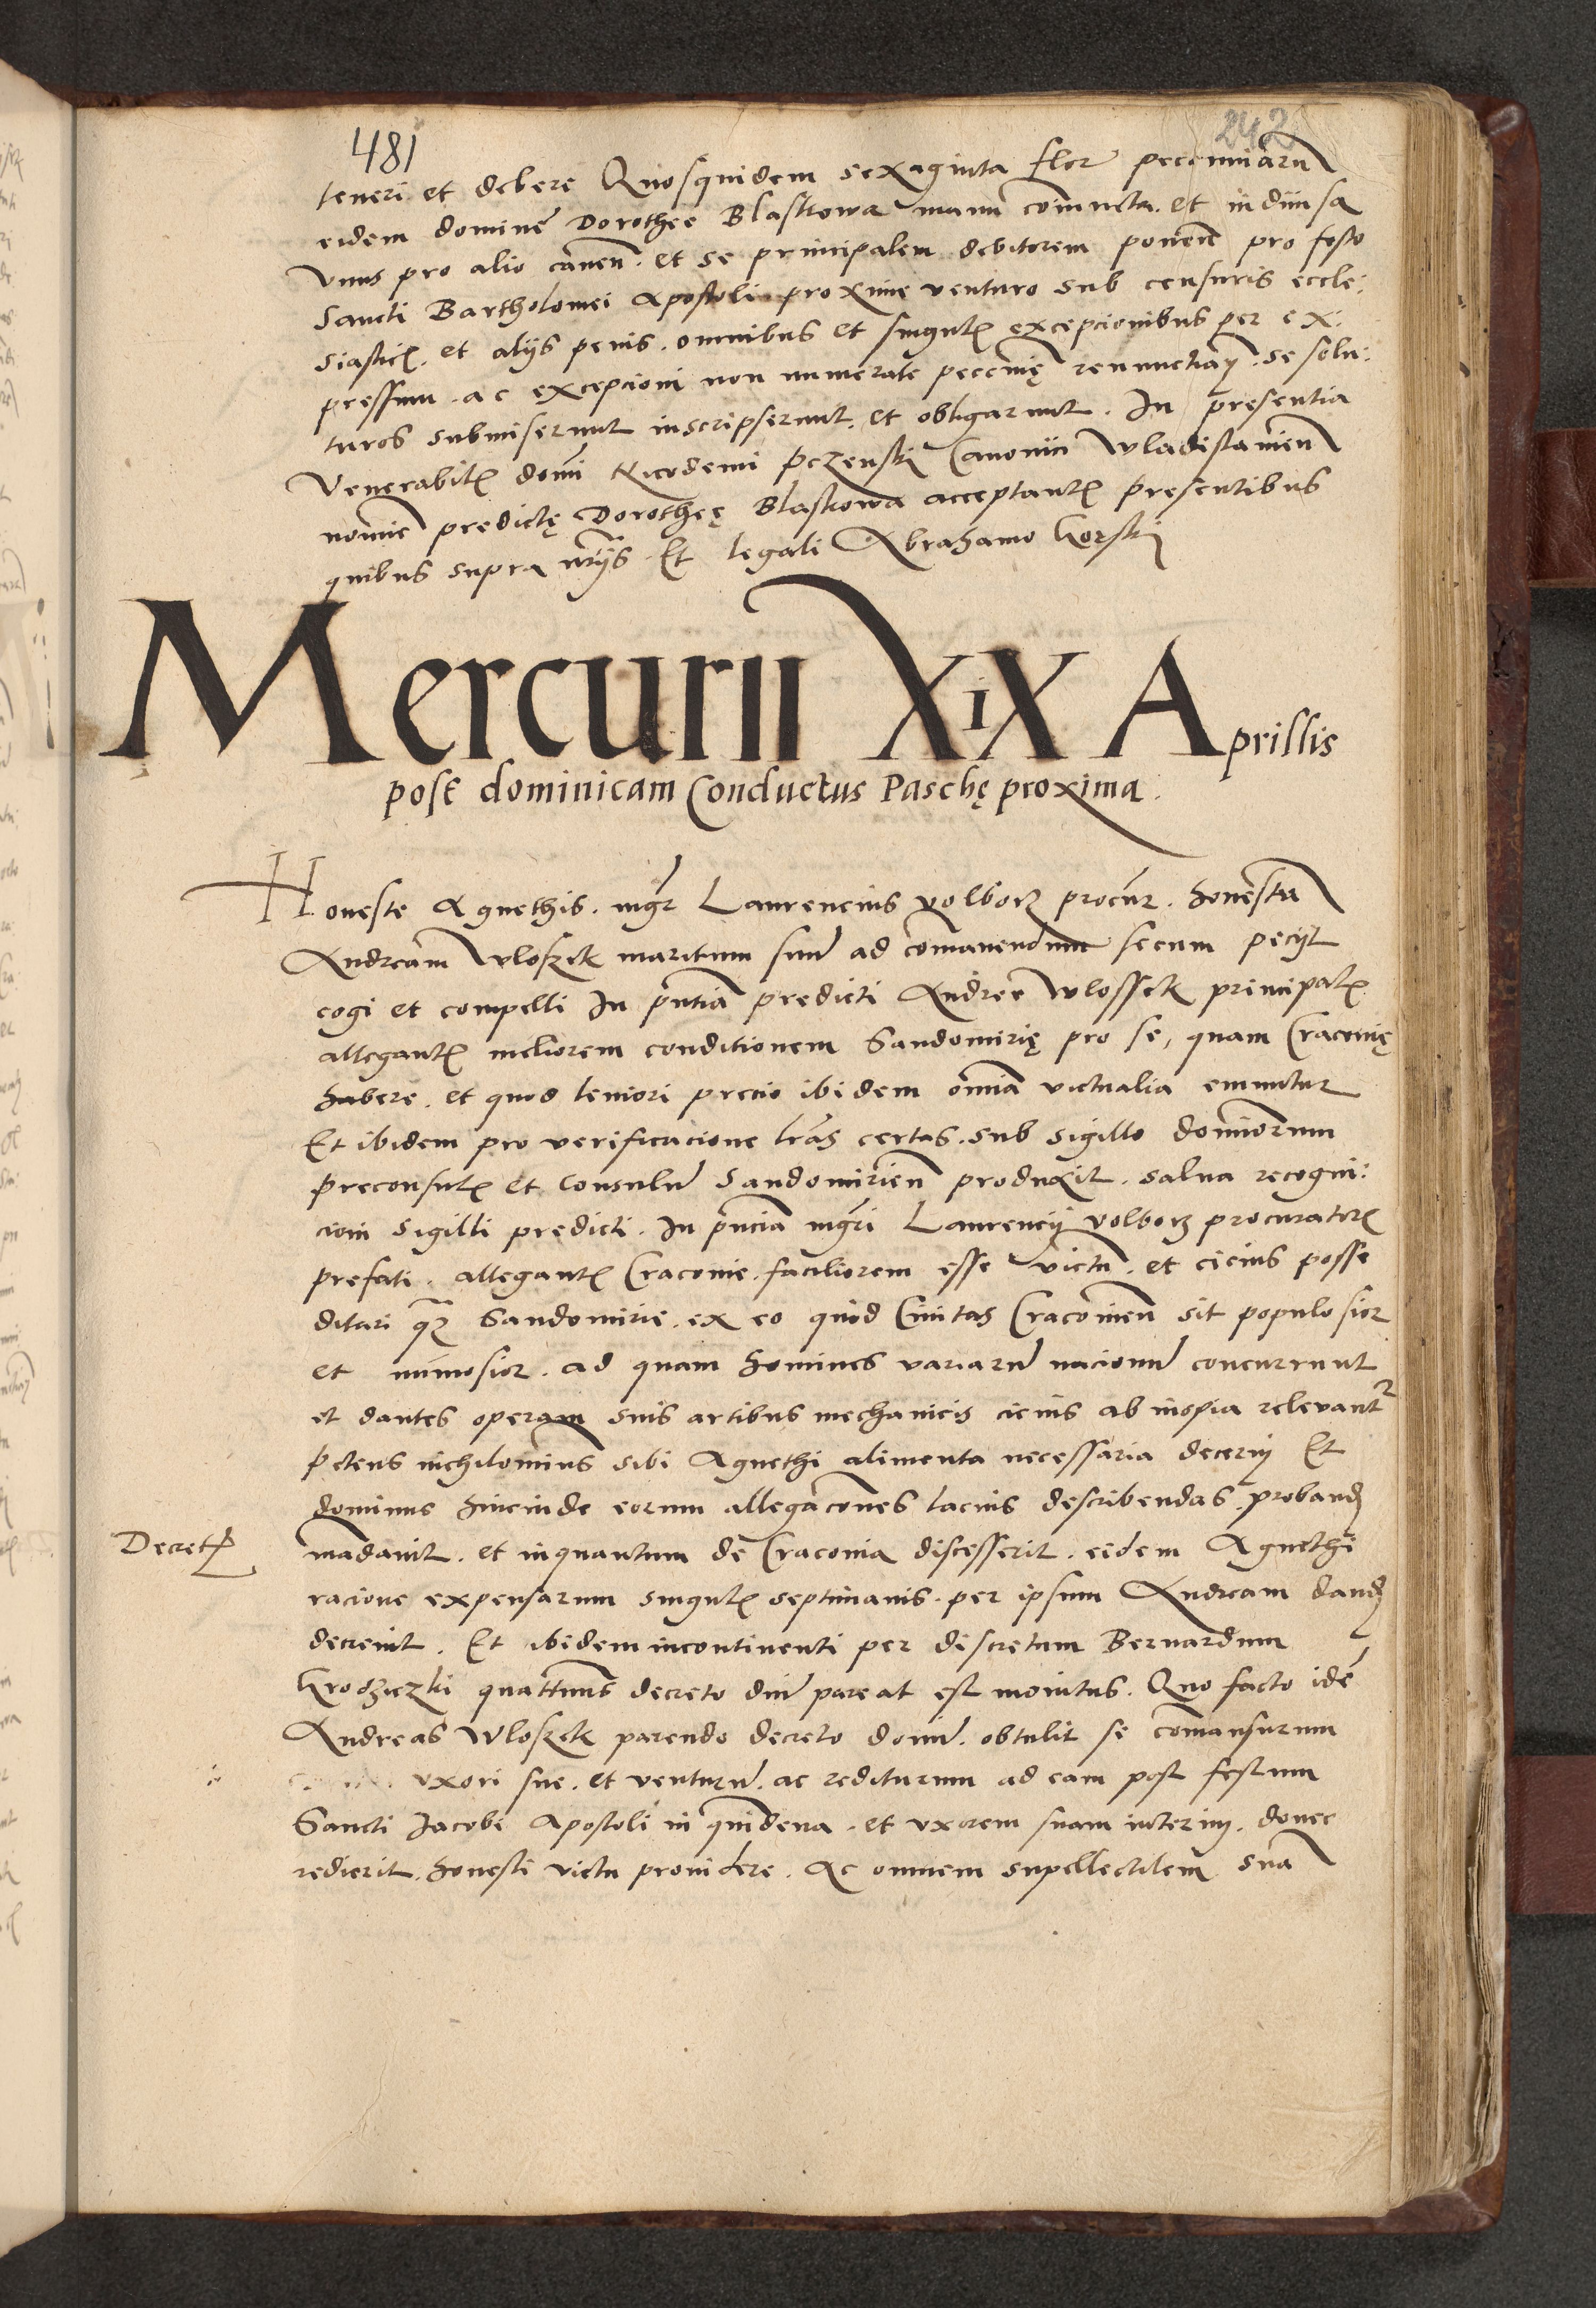 481
242
teneri et debere Quosquidem sexaginta flor pecuniaru
eidem domine Dorothee Blaskowa manu coniuncta. et indiuisa
Vnus pro alio cauen. et se principalem debitorem ponen pro festo
Sancti Bartholomei Apostoli proxime venturo sub censuris eccle:
siastic. et alijs penis. omnibus et singul excepcionibus per ex:
pressum. ac excepcioni non numerate pecunię renunctian. se solu:
turos submiserunt inscripserunt. et obligarunt. In presentia
Venerabil domi Nicodemi pczenski Canonici Wladislauien
nomine predictę Dorotheę Blaskowa acceptant presentibus
quibus supra nrijs Et legali Abrahamo Gorski
Mercurii XiX Aprillis
post dominicam Conductus Paschę proxima.
Honeste Agnethis. mgr Laurencius Volborz procur. honestu
Andream Wloszek maritum suu ad comanendum secum pecijt
cogi et compelli In pntia predicti Andree Wlossek principal
allegant meliorem conditionem Sandomirię pro se, quam Cracouię
habere. et quod leuiori precio ibidem omia victualia emuntur
Et ibidem pro verificacione lras certas. sub sigillo dominorum
preconsul et Consulu Sandomirien produxit. salua recogni:
cioni sigilli predicti. In pncia mgri Laurencij Volborz procurator
prefati. allegant Cracouie. faciliorem esse victu. et cicius posse
ditari qz Sandomirie. ex eo quod Ciuitas Cracouien sit populosior
et numosior. ad quam homines variaru nacionu concurrunt
et dantes operam suis artibus mechanicis cicius ab inopia releuantr
petens nichilominus sibi Agnethi alimenta necessaria decerni Et
dominus hincinde eorum allegacones lacius describendas. proband
Decret madauit. et inquantum de Cracouia discesserit. eidem Agnethi
racione expensarum singul septimanis. per ipsum Andream dand
decreuit. Et ibidem incontinenti per discretum Bernardum
Grodziczki quattuns decreto dni pareat est monitus. Quo facto ide
Andreas Wloszek parendo decreto domi. obtulit se comansurum
vxori sue. et venturu. ac rediturum ad eam post festum
Sancti Jacobi Apostoli in quindena. et vxorem suam interim. donec
redierit. honesti victu prouidere. Ac omnem supellectilem sua